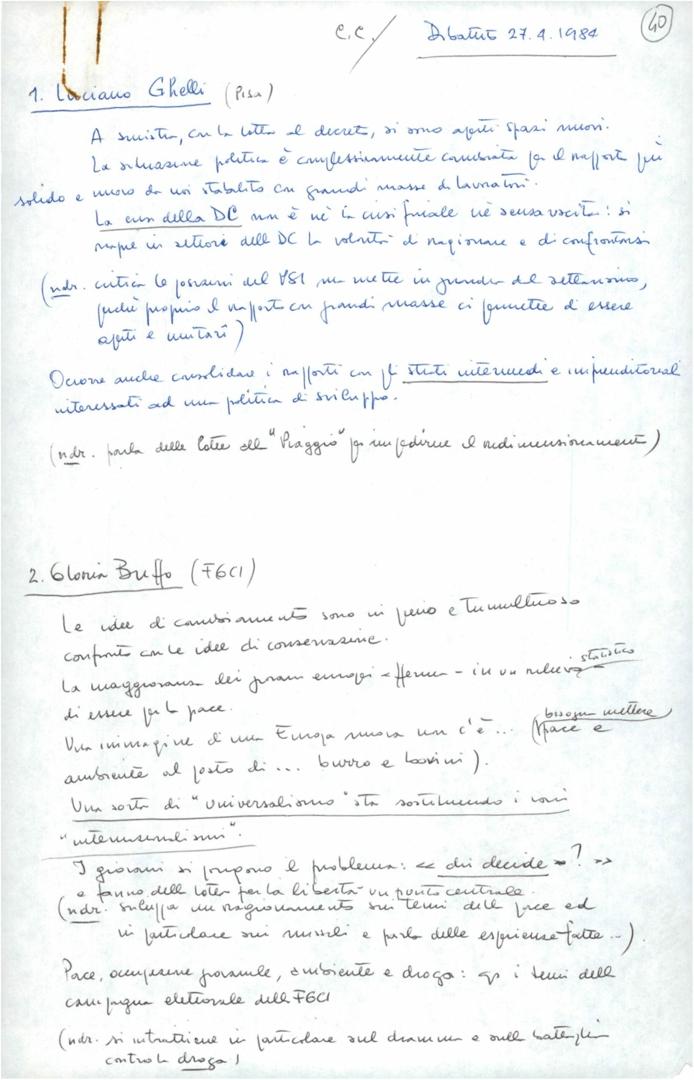 40
C.C. / Dibattito 27.4.1984
1. Luciano Ghelli (Pisa)
A sinistra, con la lotta al decreto, si sono aperti spazi nuovi.
La situazione politica è complessivamente cambiata per il rapporto più
solido e nuovo da noi stabilito con grandi masse di lavoratori.
La crisi della DC non è nè la crisi finale nè senza uscita: si
riapre in settori dell DC la volontà di ragionare e di confrontarsi
(ndr. critica le posizioni del PSI ma mette in guardia dal settarismo,
perchè proprio il rapporto con grandi masse ci permette di essere
aperti e unitari)
Occorre anche consolidare i rapporti con gli strati intermedi e imprenditoriali
interessati ad una politica di sviluppo.
(ndr. parla delle lotte all "Piaggio" per impedirne il ridimensionamento)
2. Gloria Buffo (FGCI)
Le idee di cambiamento sono in pieno e tumultuoso
confronto con le idee di conservazione.
La maggioranza dei giovani europei afferma - in un rilievo statistico
di essere per la pace.
Una immagine di una Europa nuova non c'è... (bisogna mettere pace e
ambiente al posto di ... burro e bovini).
Una sorta di "universalismo" sta sostituendo i vari
"internazionalismi".
I giovani si pongono il problema: << chi decide? >>
e fanno dell lotta per la libertà un punto centrale.
(ndr. sviluppa un ragionamento sui temi dell pace ed
in particolare sui missili e parla delle esperienze fatte...)
Pace, occupazione giovanile, ambiente e droga: qs i temi dell
campagna elettorale dell FGCI
(ndr. si intrattiene in particolare sul dramma e sulle battaglie
contro la droga)